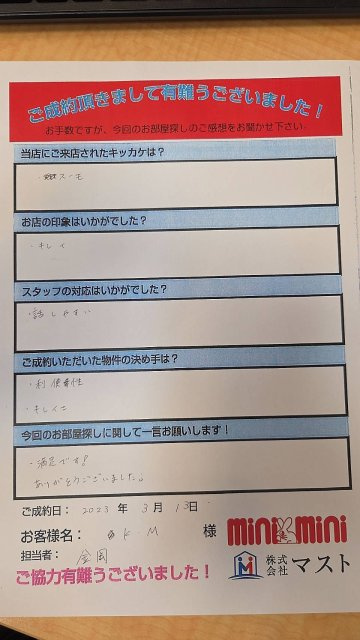 ご成約頂きまして有難うございました！
お手数ですが、今回のお部屋探しのご感想をお聞かせ下さい
当店にご来店されたキッカケは？
スーモ
お店の印象はいかがでした？
・キレイ
スタッフの対応はいかがでした？
・話しやすい
ご成約いただいた物件の決め手は？
・利便性
・キレイさ
今回のお部屋探しに関して一言お願いします！
・満足です！
ありがとうございました。
ご成約日： 2023 年 3 月 13 日
お客様名： K.M 様
担当者： 金岡
ご協力有難うございました！
mini mini
株式会社 マスト